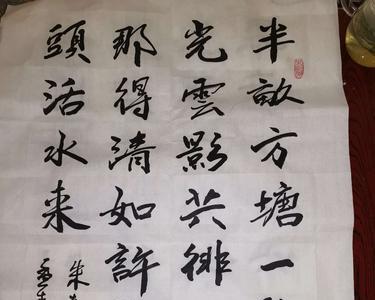 半畝方塘一
光雲影共徘
那得清如許
頭活水来
朱